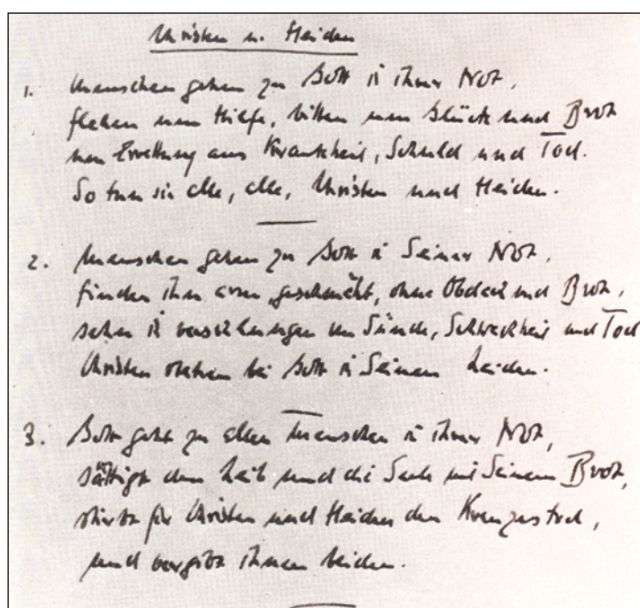 Christen u. Heiden
1. Menschen gehen zu Gott in ihrer Not,
flehen um Hilfe, bitten um Glück und Brot
um Errettung aus Krankheit, Schuld und Tod.
So tun sie alle, alle, Christen und Heiden.
2. Menschen gehen zu Gott in Seiner Not,
finden ihn arm, geschmäht, ohne Obdach und Brot,
sehen ihn verschlungen von Sünde, Schwachheit und Tod
Christen stehen bei Gott in Seinem Leiden.
3. Gott geht zu allen Menschen in ihrer Not,
sättigt den Leib und die Seele mit Seinem Brot,
stirbt für Christen und Heiden den Kreuzestod,
und vergibt ihnen beiden.